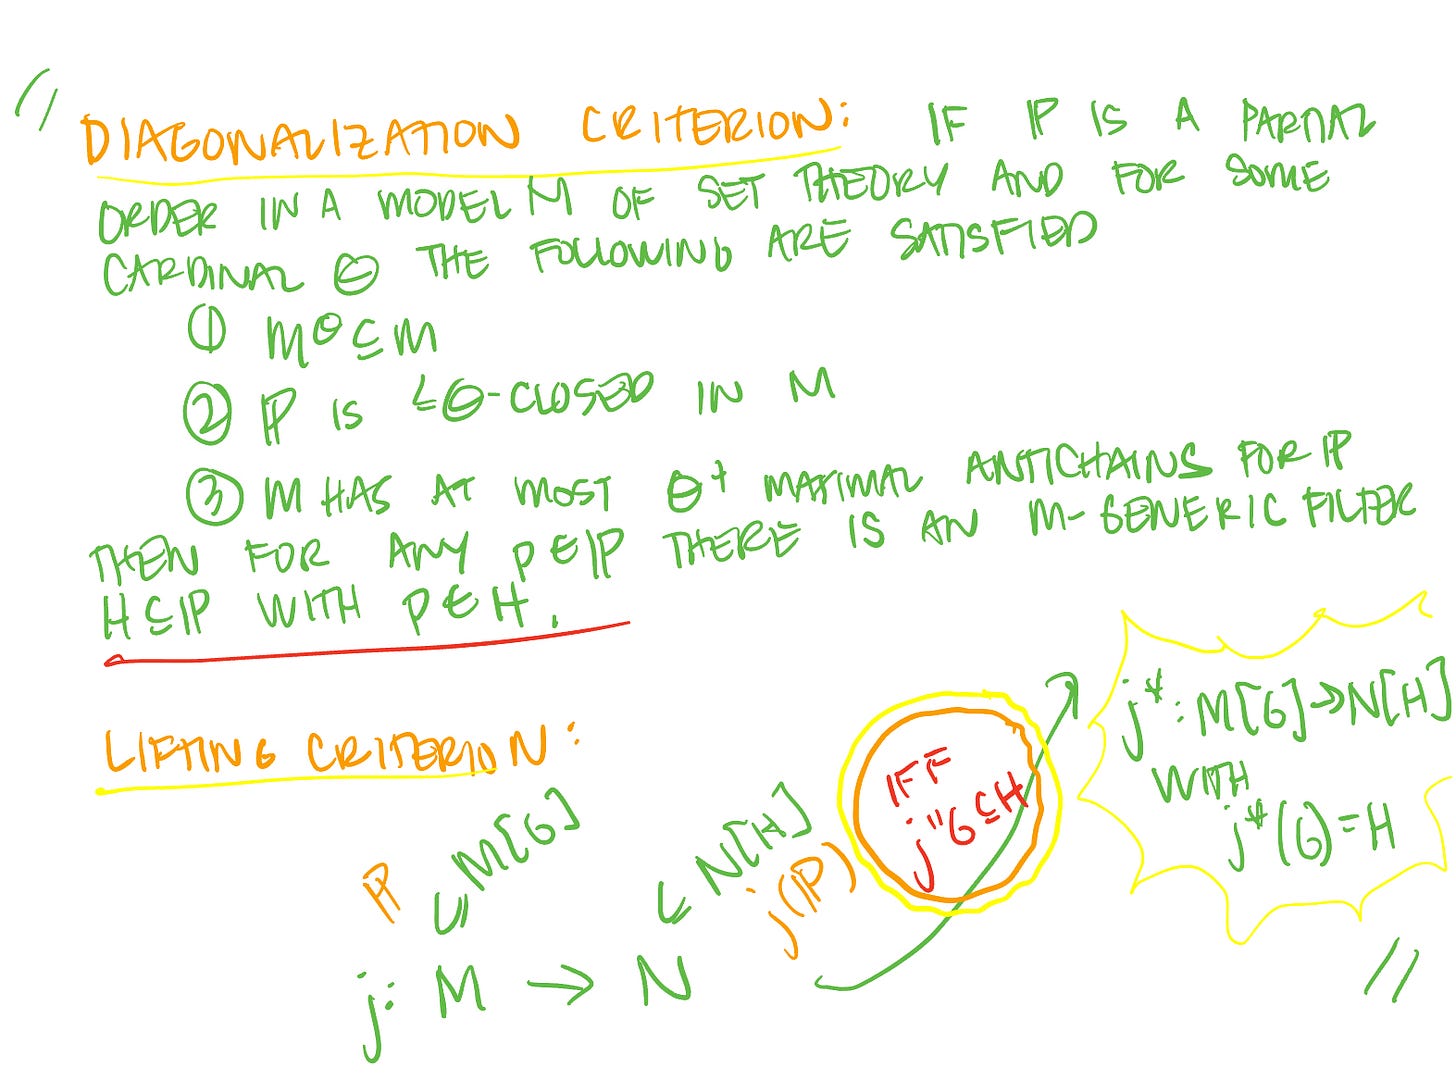 "
DIAGONALIZATION CRITERION: IF ℙ IS A PARTIAL
ORDER IN A MODEL M OF SET THEORY AND FOR SOME
CARDINAL θ THE FOLLOWING ARE SATISFIED
① M^θ ⊆ M
② ℙ IS ≤θ-CLOSED IN M
③ M HAS AT MOST θ⁺ MAXIMAL ANTICHAINS FOR ℙ
THEN FOR ANY p ∈ ℙ THERE IS AN M-GENERIC FILTER
H ⊆ ℙ WITH p ∈ H.
LIFTING CRITERION:
ℙ ⊆ M[G]
⊆ N[H]
j(ℙ)
j: M → N
IFF
j"G ⊆ H
j*: M[G] → N[H]
WITH
j*(G) = H
"